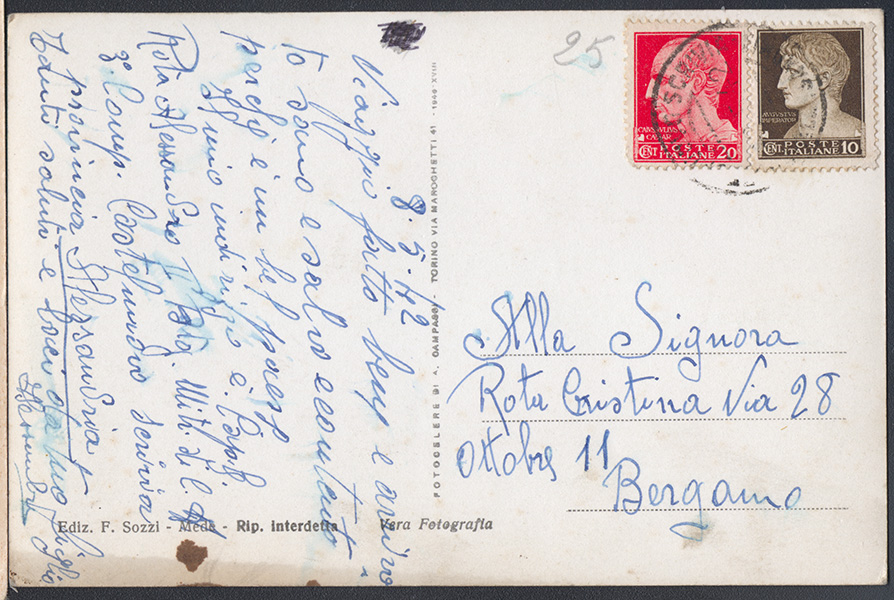 8.5.42
Viaggio fatto bene e arriva
to sano e salvo e contento
perche è un bel paese
il mio indirizzo è Cap.
Rota Alessandro Btg. Mit. di C. A.
3° Comp. Castelnuovo Scrivia
provincia Alessandria
tanti saluti e baci da tuo figlio
Alessandro
Ediz. F. Sozzi - Mede - Rip. interdetta
Vera Fotografia
FOTOCELERE DI A. CAMPASSI - TORINO VIA MAROCHETTI 41 - 1940 XVIII
25
CAIVS IVLIVS
CAESAR
CENT. POSTE ITALIANE 20
AVGVSTVS
IMPERATOR
CENT. POSTE ITALIANE 10
Alla Signora
Rota Cristina Via 28
Ottobre 11
Bergamo